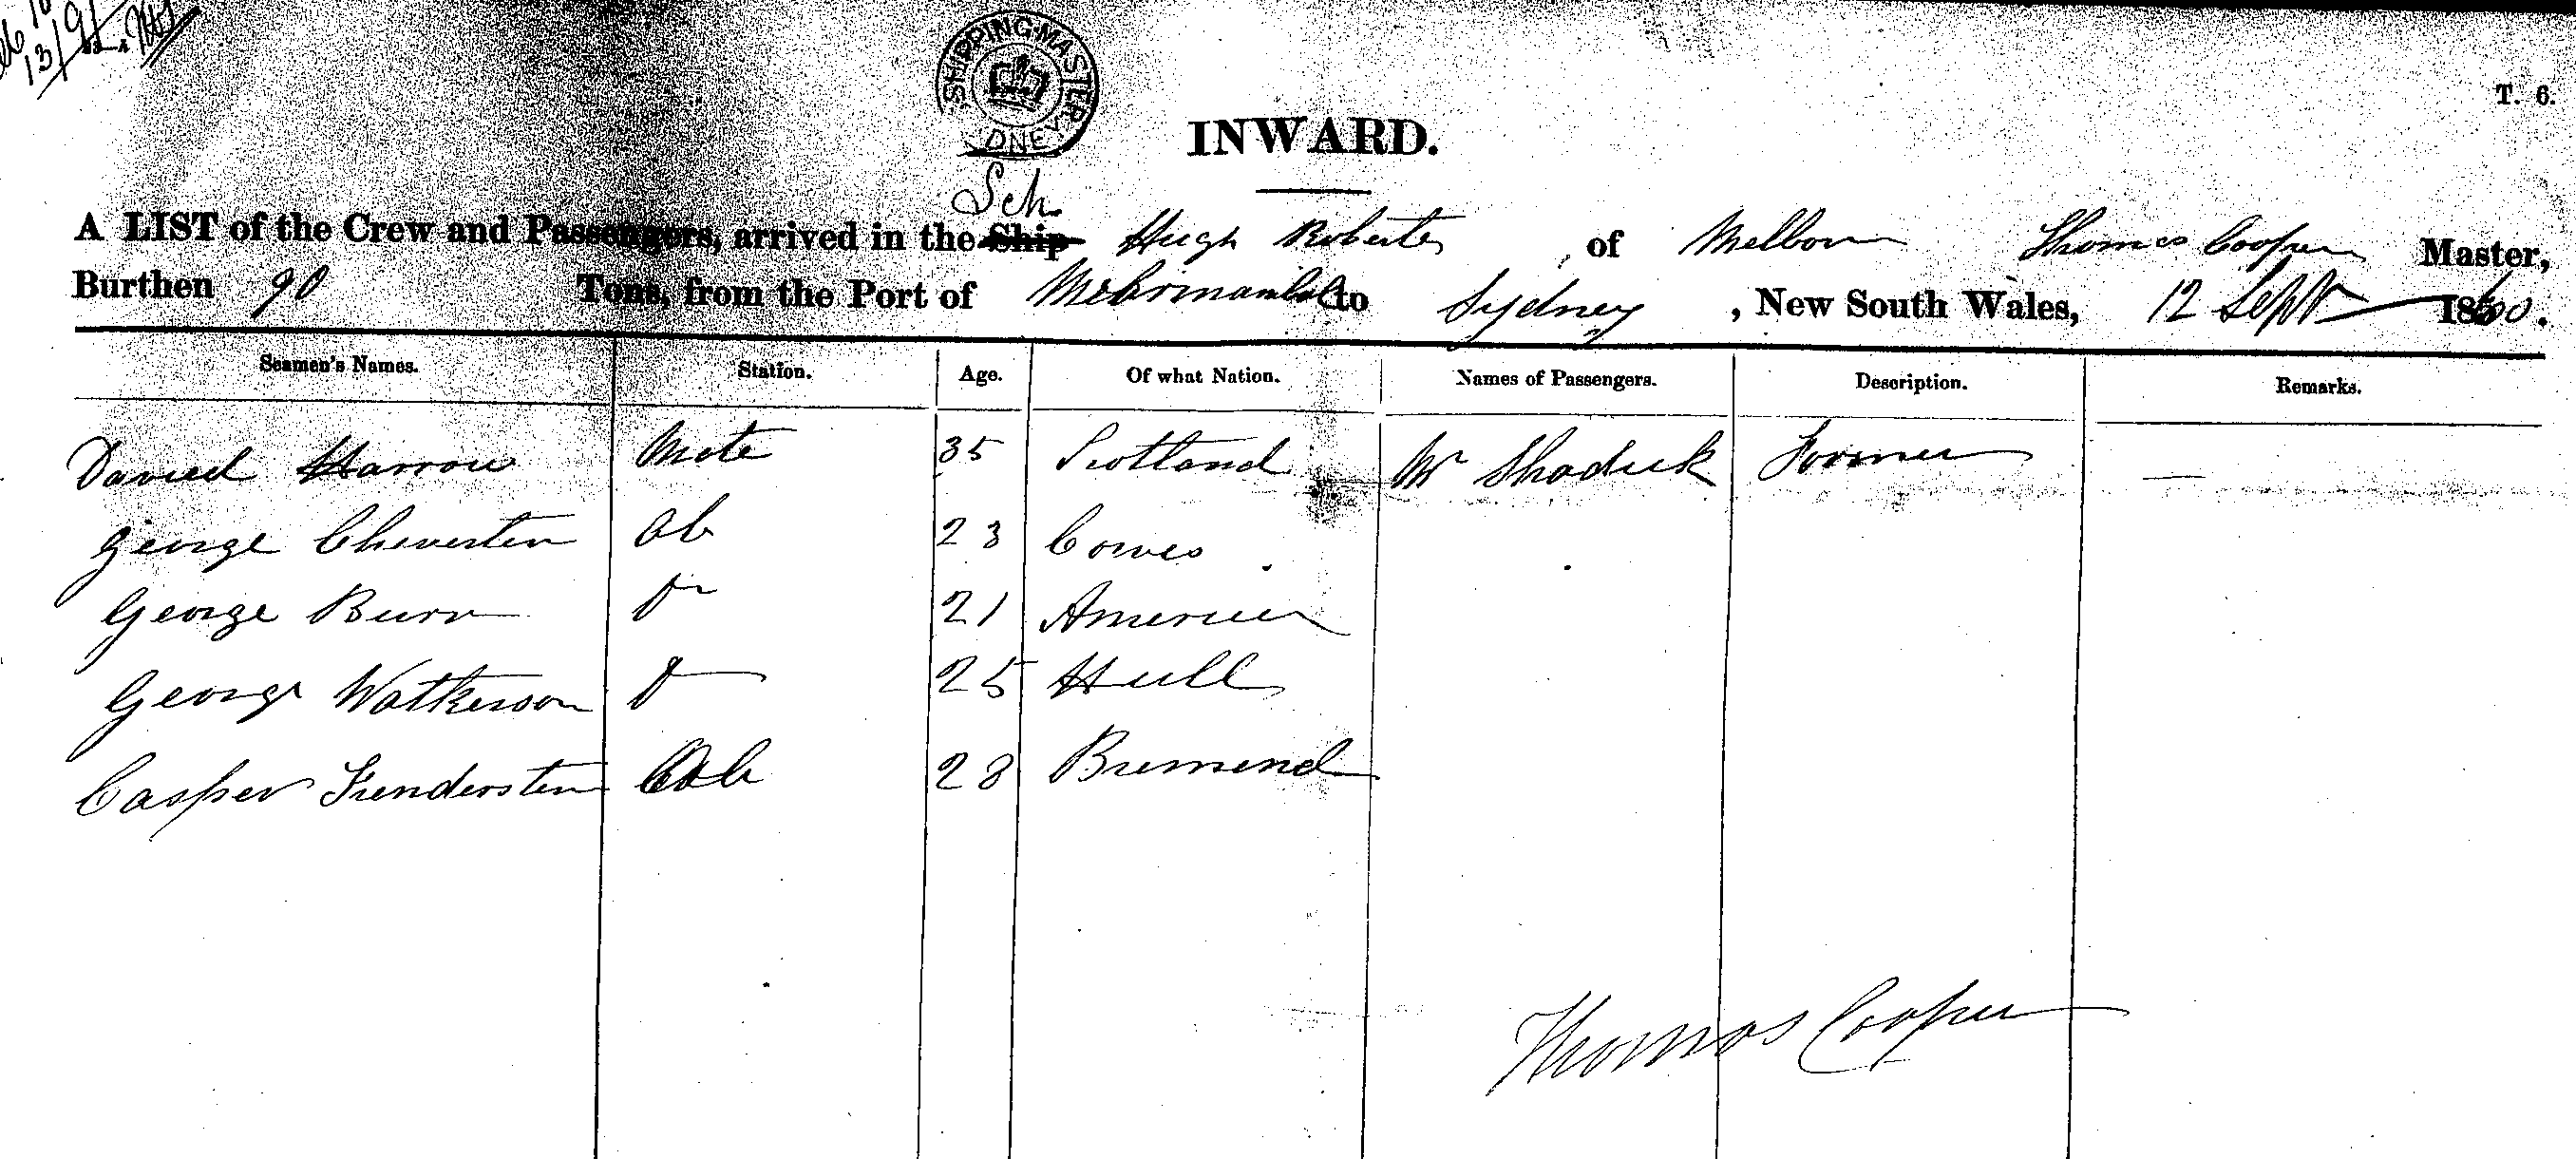 13/9/
SHIPPING MASTER
DNEY
T. 6.
INWARD.
Sch.
A LIST of the Crew and Passengers, arrived in the Ship Hugh Roberts, of Melbourn Thomas Cooper Master,
Burthen 90 Tons, from the Port of to Sydney, New South Wales, 12 Sept 1860.
Seamen's Names. Station. Age. Of what Nation. Names of Passengers. Description. Remarks.
Daniel Harrow Mate 35 Scotland Mr Shaduck —
George Cheverten ab 23 Cowes
George Burn 21 America
George Watkerson 25 Hull
Casper ab 28 Bremend
Thomas Cooper